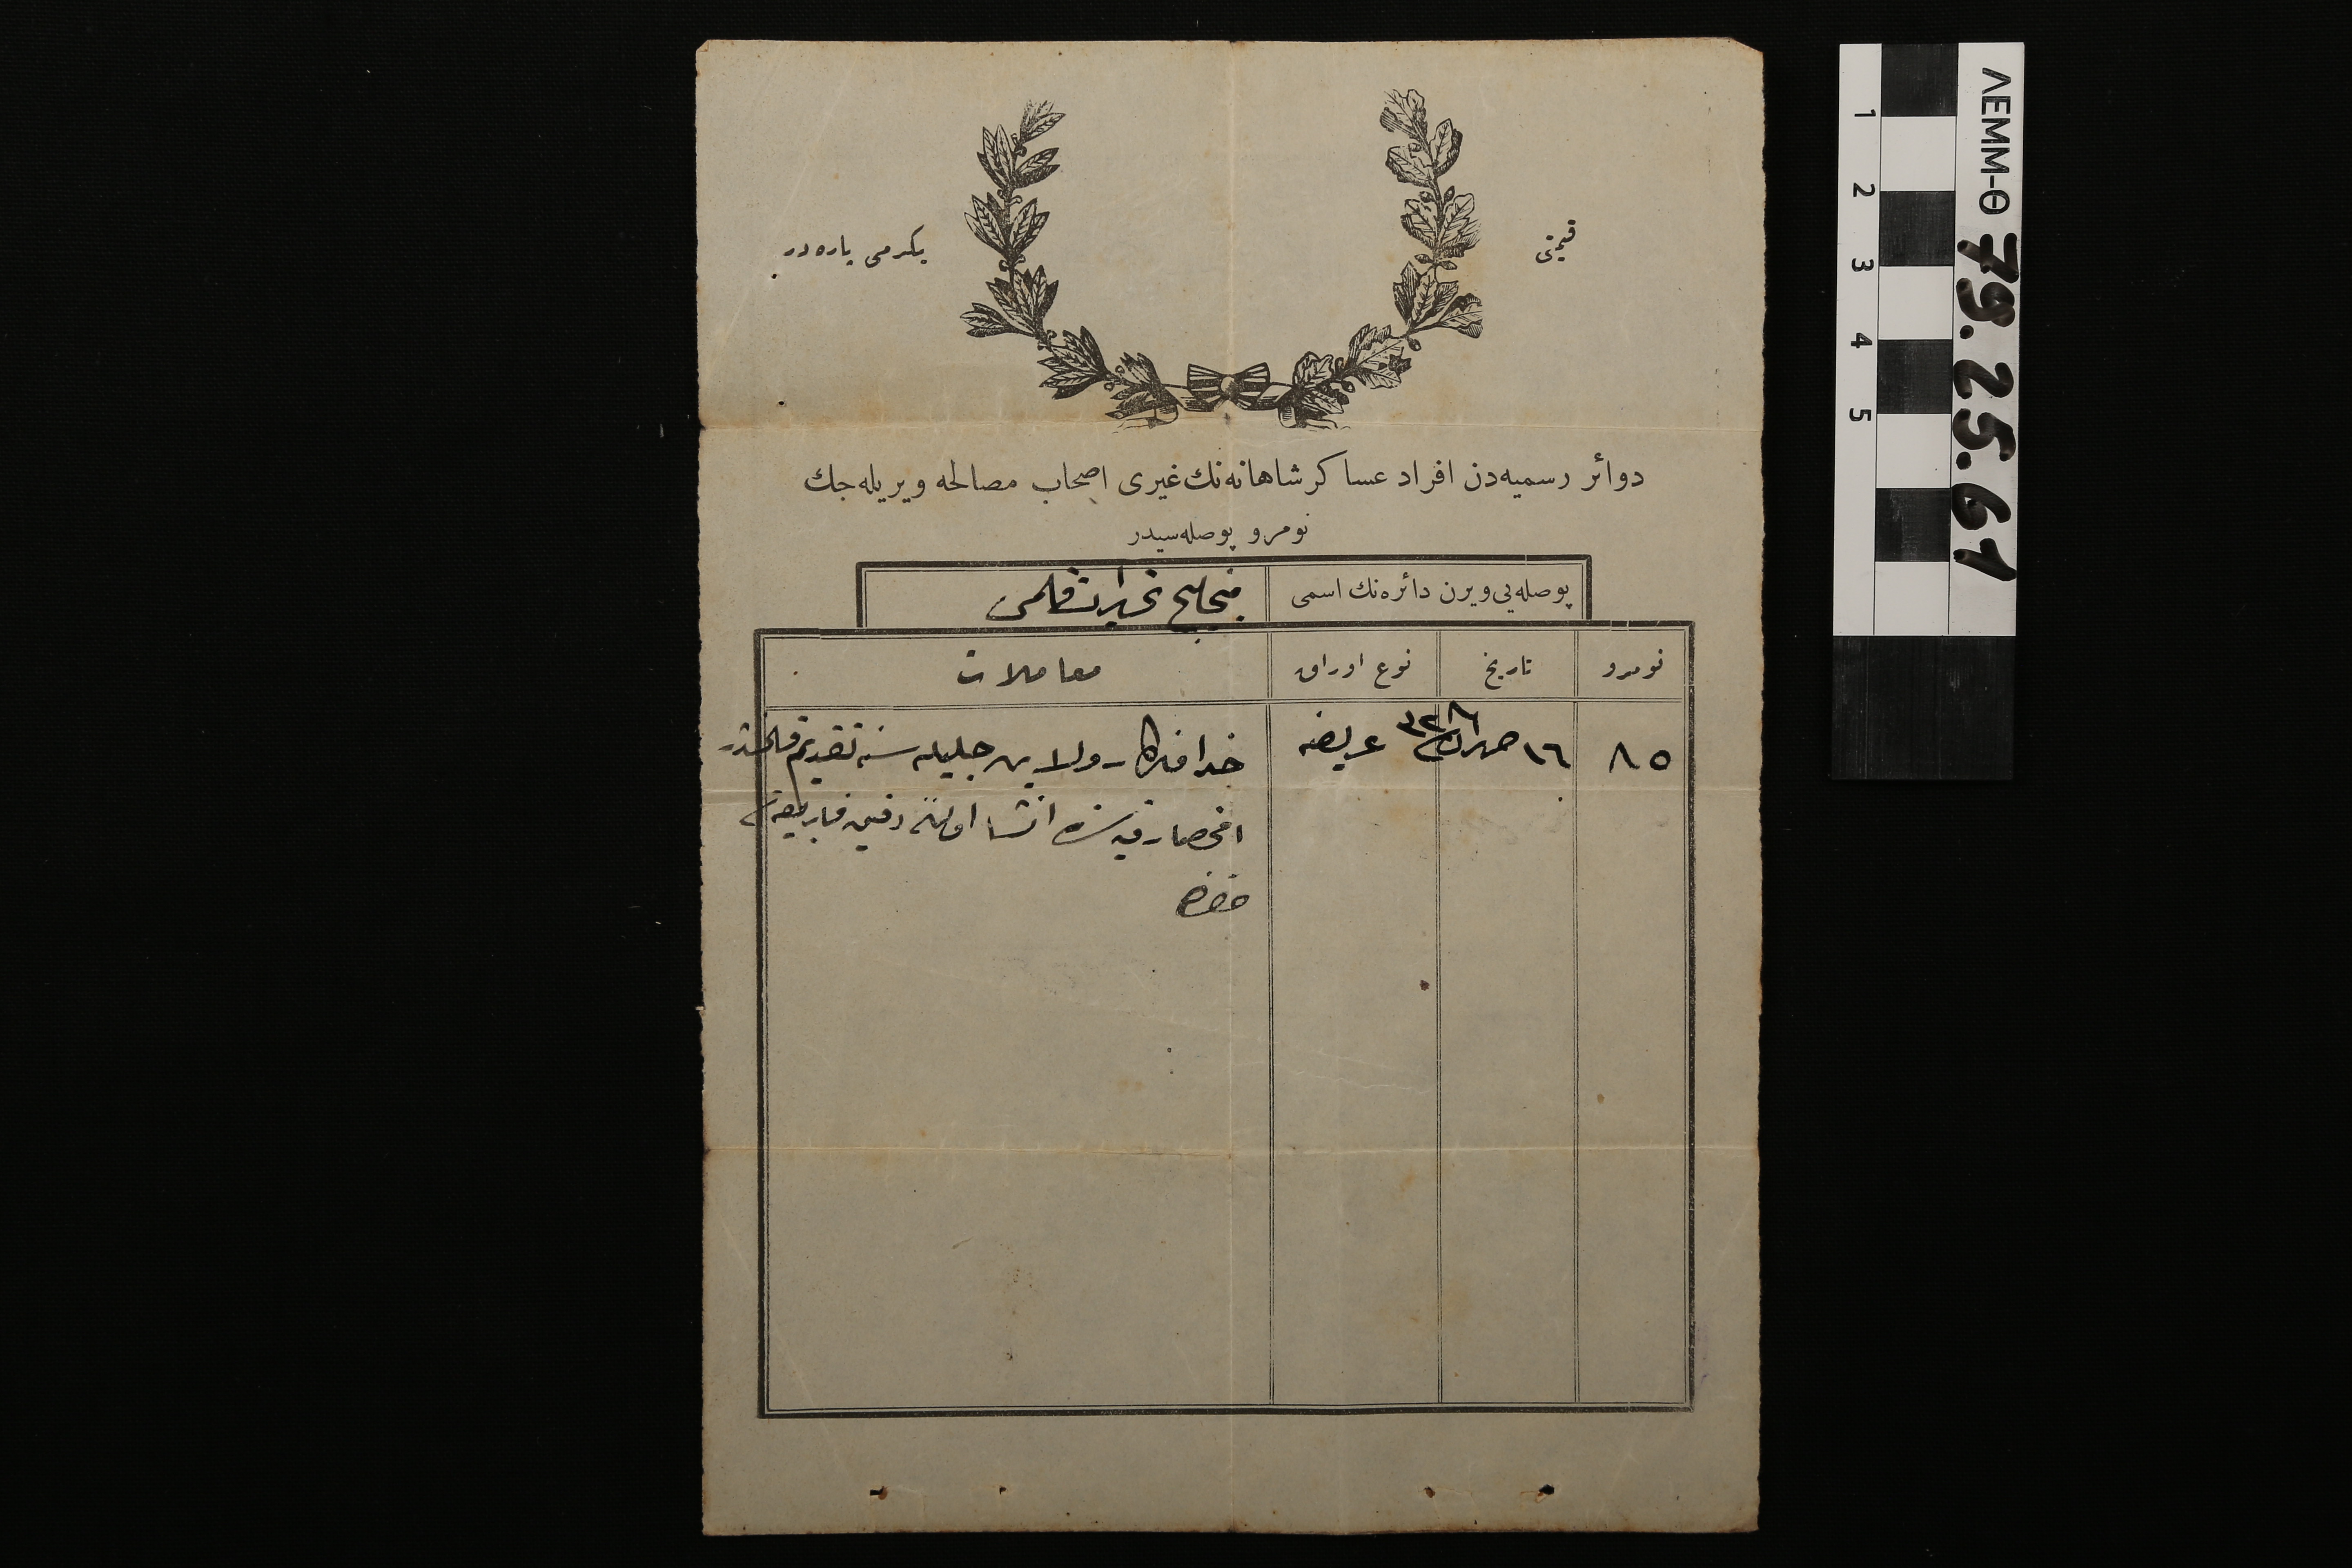 قیمتی
یکرمی پاره‌در
دوائر رسمیه‌دن افراد عساکر شاهانه‌نك غیری اصحاب مصالحه ویریله‌جك
نومرو پوصله‌سیدر
پوصله‌یی ویرن دائره‌نك اسمی
تحریرات قلمی
نومرو
تاریخ
نوع اوراق
معاملات
٨٥
١٦
عریضه
خداوندکار ولایت جلیله‌سنه تقدیم قلنمشدر
انشا اولنان دقیق فابریقه‌سی
ΛΕΜΜ-Θ 79.25.61
1
2
3
4
5